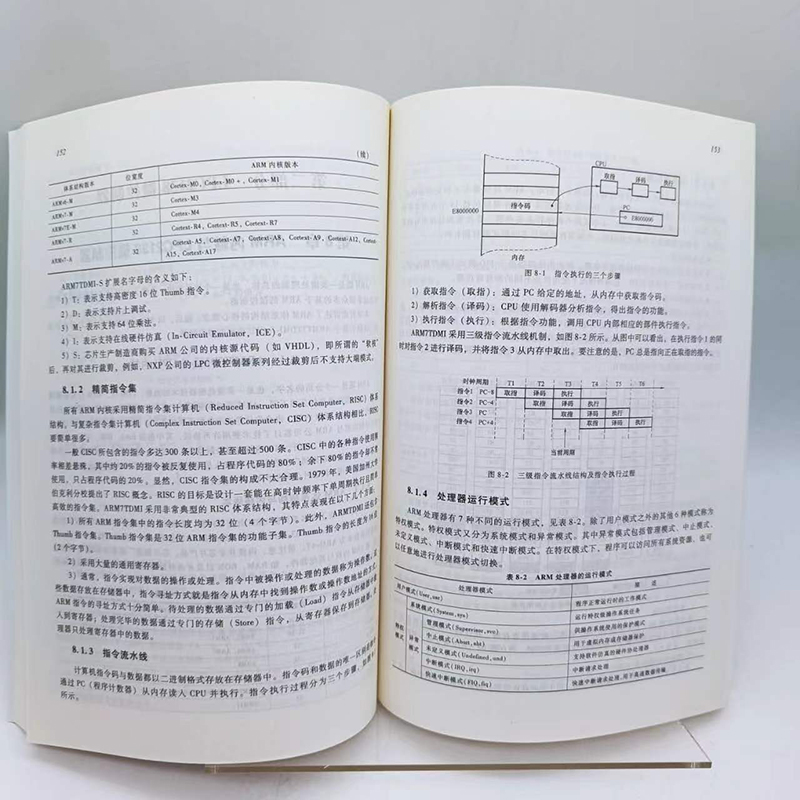 152
(续)
体系结构版本 位宽度 ARM 内核版本
ARMv6-M 32 Cortex-M0, Cortex-M0+, Cortex-M1
ARMv7-M 32 Cortex-M3
ARMv7E-M 32 Cortex-M4
ARMv7-R 32 Cortex-R4, Cortex-R5, Cortex-R7
ARMv7-A 32 Cortex-A5, Cortex-A7, Cortex-A8, Cortex-A9, Cortex-A12, Cortex-
A15, Cortex-A17
ARM7TDMI-S 扩展名字母的含义如下：
1) T：表示支持高密度 16 位 Thumb 指令。
2) D：表示支持片上调试。
3) M：表示支持 64 位乘法。
4) I：表示支持在线硬件仿真 (In-Circuit Emulator, ICE)。
5) S：芯片生产制造商购买 ARM 公司的内核源代码（如 VHDL），即所谓的“软核”
后，再对其进行裁剪，例如，NXP 公司的 LPC 微控制器系列经过裁剪后不支持大端模式。
8.1.2 精简指令集
所有 ARM 内核采用精简指令集计算机（Reduced Instruction Set Computer，RISC）体系
结构。与复杂指令集计算机（Complex Instruction Set Computer，CISC）体系结构相比，RISC
要简单得多。
一般 CISC 所包含的指令多达 300 条以上，甚至超过 500 条。CISC 中的各种指令使用
率相差悬殊，其中约 20% 的指令被反复使用，占程序代码的 80%；余下 80% 的指令却不
使用，只占程序代码的 20%。显然，CISC 指令集的构成不太合理。1979 年，美国加州大学
伯克利分校提出了 RISC 概念。RISC 的目标是设计一套能在高时钟频率下单周期执行且
高效的指令集。ARM7TDMI 采用非常典型的 RISC 体系结构，其特点表现在以下几个方面：
1) 所有 ARM 指令集中的指令长度均为 32 位（4 个字节）。此外，ARM7TDMI
Thumb 指令集。Thumb 指令集是 32 位 ARM 指令集的功能子集。Thumb 指令的长度为 16 位
(2 个字节)。
2) 采用大量的通用寄存器。
3) 通常，指令实现对数据的操作或处理。指令中被操作或处理的数据称为操作数。
些数据放在存储器中，指令寻址方式就是指令从内存中找到操作数或操作数地址的方式。
ARM 指令的寻址方式十分简单。待处理的数据通过专门的加载（Load）指令从存储器中
入到寄存器；处理完毕的数据通过专门的存储（Store）指令，从寄存器保存到存储器。
处理器只处理寄存器中的数据。
8.1.3 指令流水线
计算机指令代码与数据都以二进制格式存放在存储器中。指令码和数据的唯一区别
通过 PC（程序计数器）从内存读入 CPU 并执行。指令执行过程分为三个步骤，
所示。
153
CPU
取指 译码 执行
指令码
PC
E8000000 E8000000
内存
图 8-1 指令执行的三个步骤
1) 获取指令（取指）：通过 PC 给定的地址，从内存中获取指令码。
2) 解析指令（译码）：CPU 使用解码器分析指令，得出指令的功能。
3) 执行指令（执行）：根据指令功能，调用 CPU 内部相应的器件执行指令。
ARM7TDMI 采用三级指令流水线机制，如图 8-2 所示。从图中可以看出，在执行指令 1 的同
时对指令 2 进行译码，并将指令 3 从内存中取出。要注意的是，PC 总是指向正在取指的指令。
时钟周期 T1 T2 T3 T4 T5 T6
指令1 PC-8 取指 译码 执行
指令2 取指 译码 执行
指令3 PC 取指 译码 执行
指令4 PC+4 取指 译码 执行
当前周期
图 8-2 三级指令流水线结构及指令执行过程
8.1.4 处理器运行模式
ARM 处理器有 7 种不同的运行模式，见表 8-2。除了用户模式之外的其他 6 种模式称为
特权模式。特权模式又分为系统模式和异常模式。其中异常模式包括管理模式、中止模式、
未定义模式、中断模式和快速中断模式。在特权模式下，程序可以访问所有系统资源，也可
以任意地进行处理器模式切换。
表 8-2 ARM 处理器的运行模式
处理器模式 描 述
用户模式 (User, usr) 程序正常运行时的工作模式
特权模式 系统模式 (System, sys) 运行特权级操作系统任务
异常模式 管理模式 (Supervisor, svc) 供操作系统使用的保护模式
中止模式 (Abort, abt) 用于虚拟内存或存储器保护
未定义模式 (Undefined, und) 支持软件仿真的硬件协处理器
中断模式 (IRQ, irq) 中断请求处理
快速中断模式 (FIQ, fiq) 快速中断请求处理，用于高速数据传输